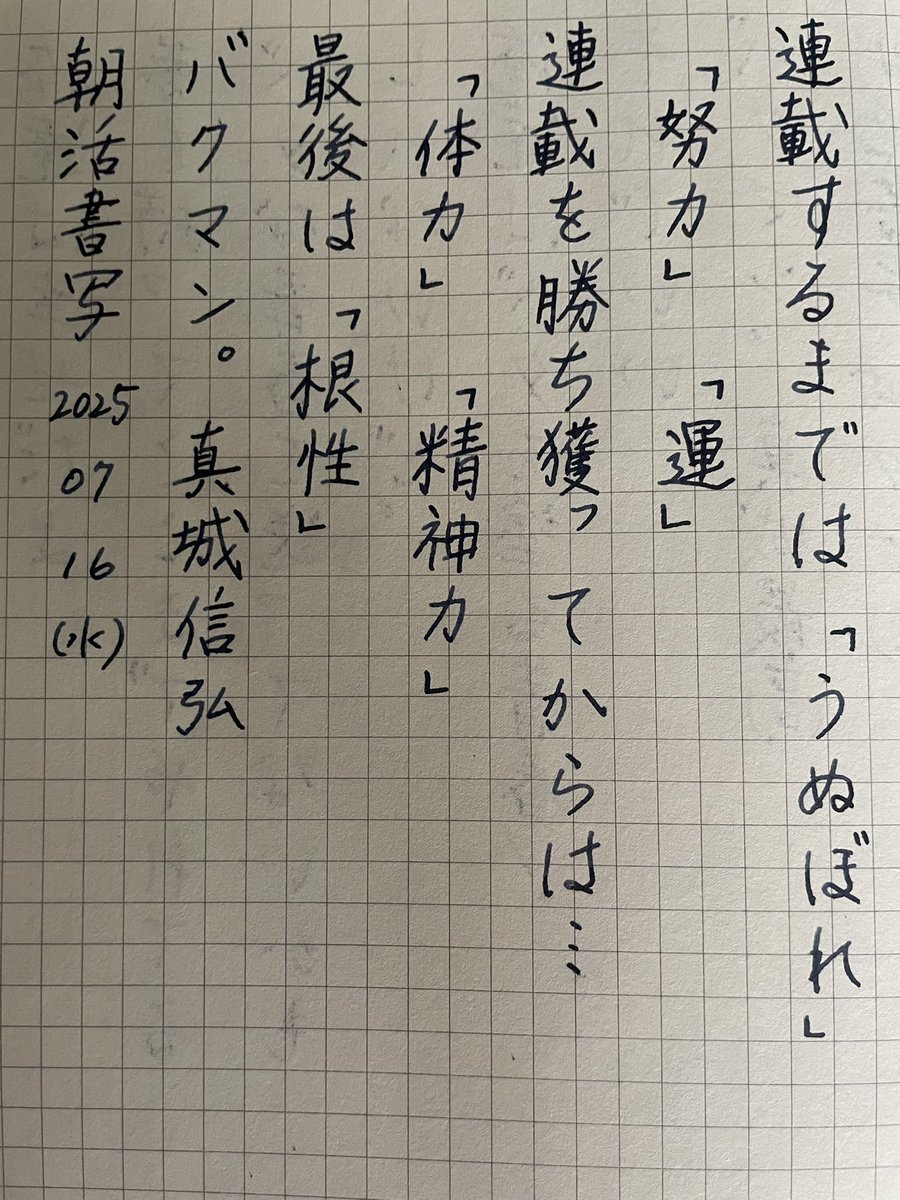 連載するまでは「うぬぼれ」
「努力」「運」
連載を勝ち獲ってからは…
「体力」「精神力」
最後は「根性」
バクマン。真城信弘
朝活書写 2025 07 16 (水)